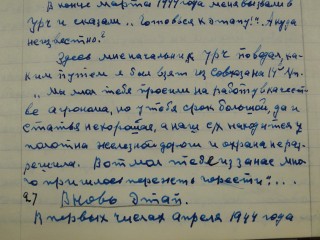 В конце марта 1944 года меня вызвали в
УРЧ и сказали „Готовься к этапу!". А куда
неизвестно?
Здесь мне начальник УРЧ поведал, ка-
ким путем я был взят из совхоза на
„Мы мол тебя просили на работу в качест-
ве агронома, но у тебя срок большой, да и
статья нехорошая, а наш с/х находится у
полотна железной дороги и охрана не раз-
решила. Вот мол тебе из за нас мно-
го пришлось пережить горести"...
27 Вновь этап.
В первых числах апреля 1944 года